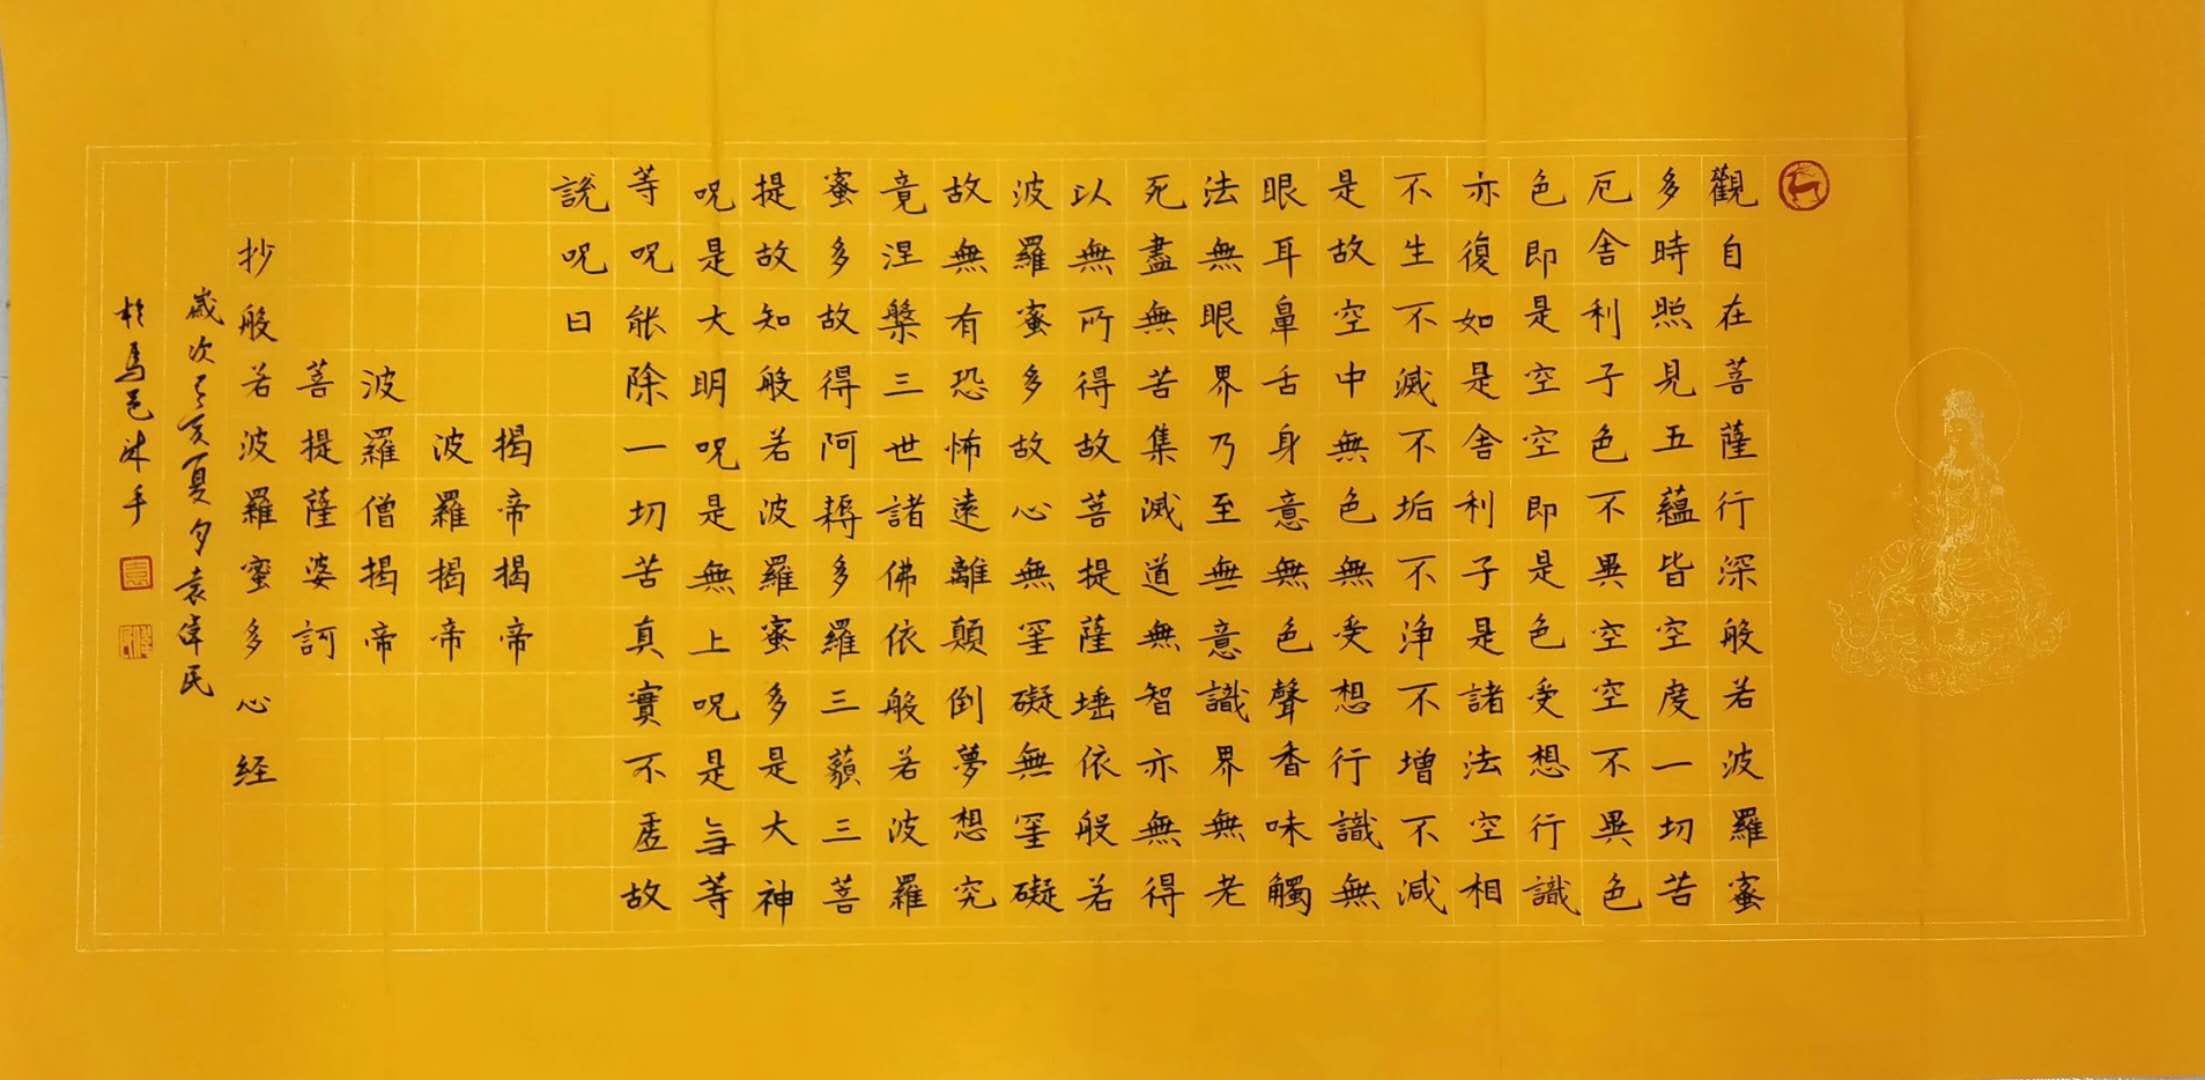 觀自在菩薩行深般若波羅蜜
多時照見五蘊皆空度一切苦
厄舍利子色不異空空不異色
色即是空空即是色受想行識
亦復如是舍利子是諸法空相
不生不滅不垢不浄不增不減
是故空中無色無受想行識無
眼耳鼻舌身意無色聲香味觸
法無眼界乃至無意識界無老
死盡無苦集滅道無智亦無得
以無所得故菩提薩埵依般若
波羅蜜多故心無罣礙無罣礙
故無有恐怖遠離顛倒夢想究
竟涅槃三世諸佛依般若波羅
蜜多故得阿耨多羅三藐三菩
提故知般若波羅蜜多是大神
呪是大明呪是無上呪是無等
等呪能除一切苦真實不虛故
說呪曰
揭帝揭帝
波羅揭帝
波羅僧揭帝
菩提薩婆訶
抄般若波羅蜜多心経
歲次己亥夏月袁偉民
於馬邑沐手